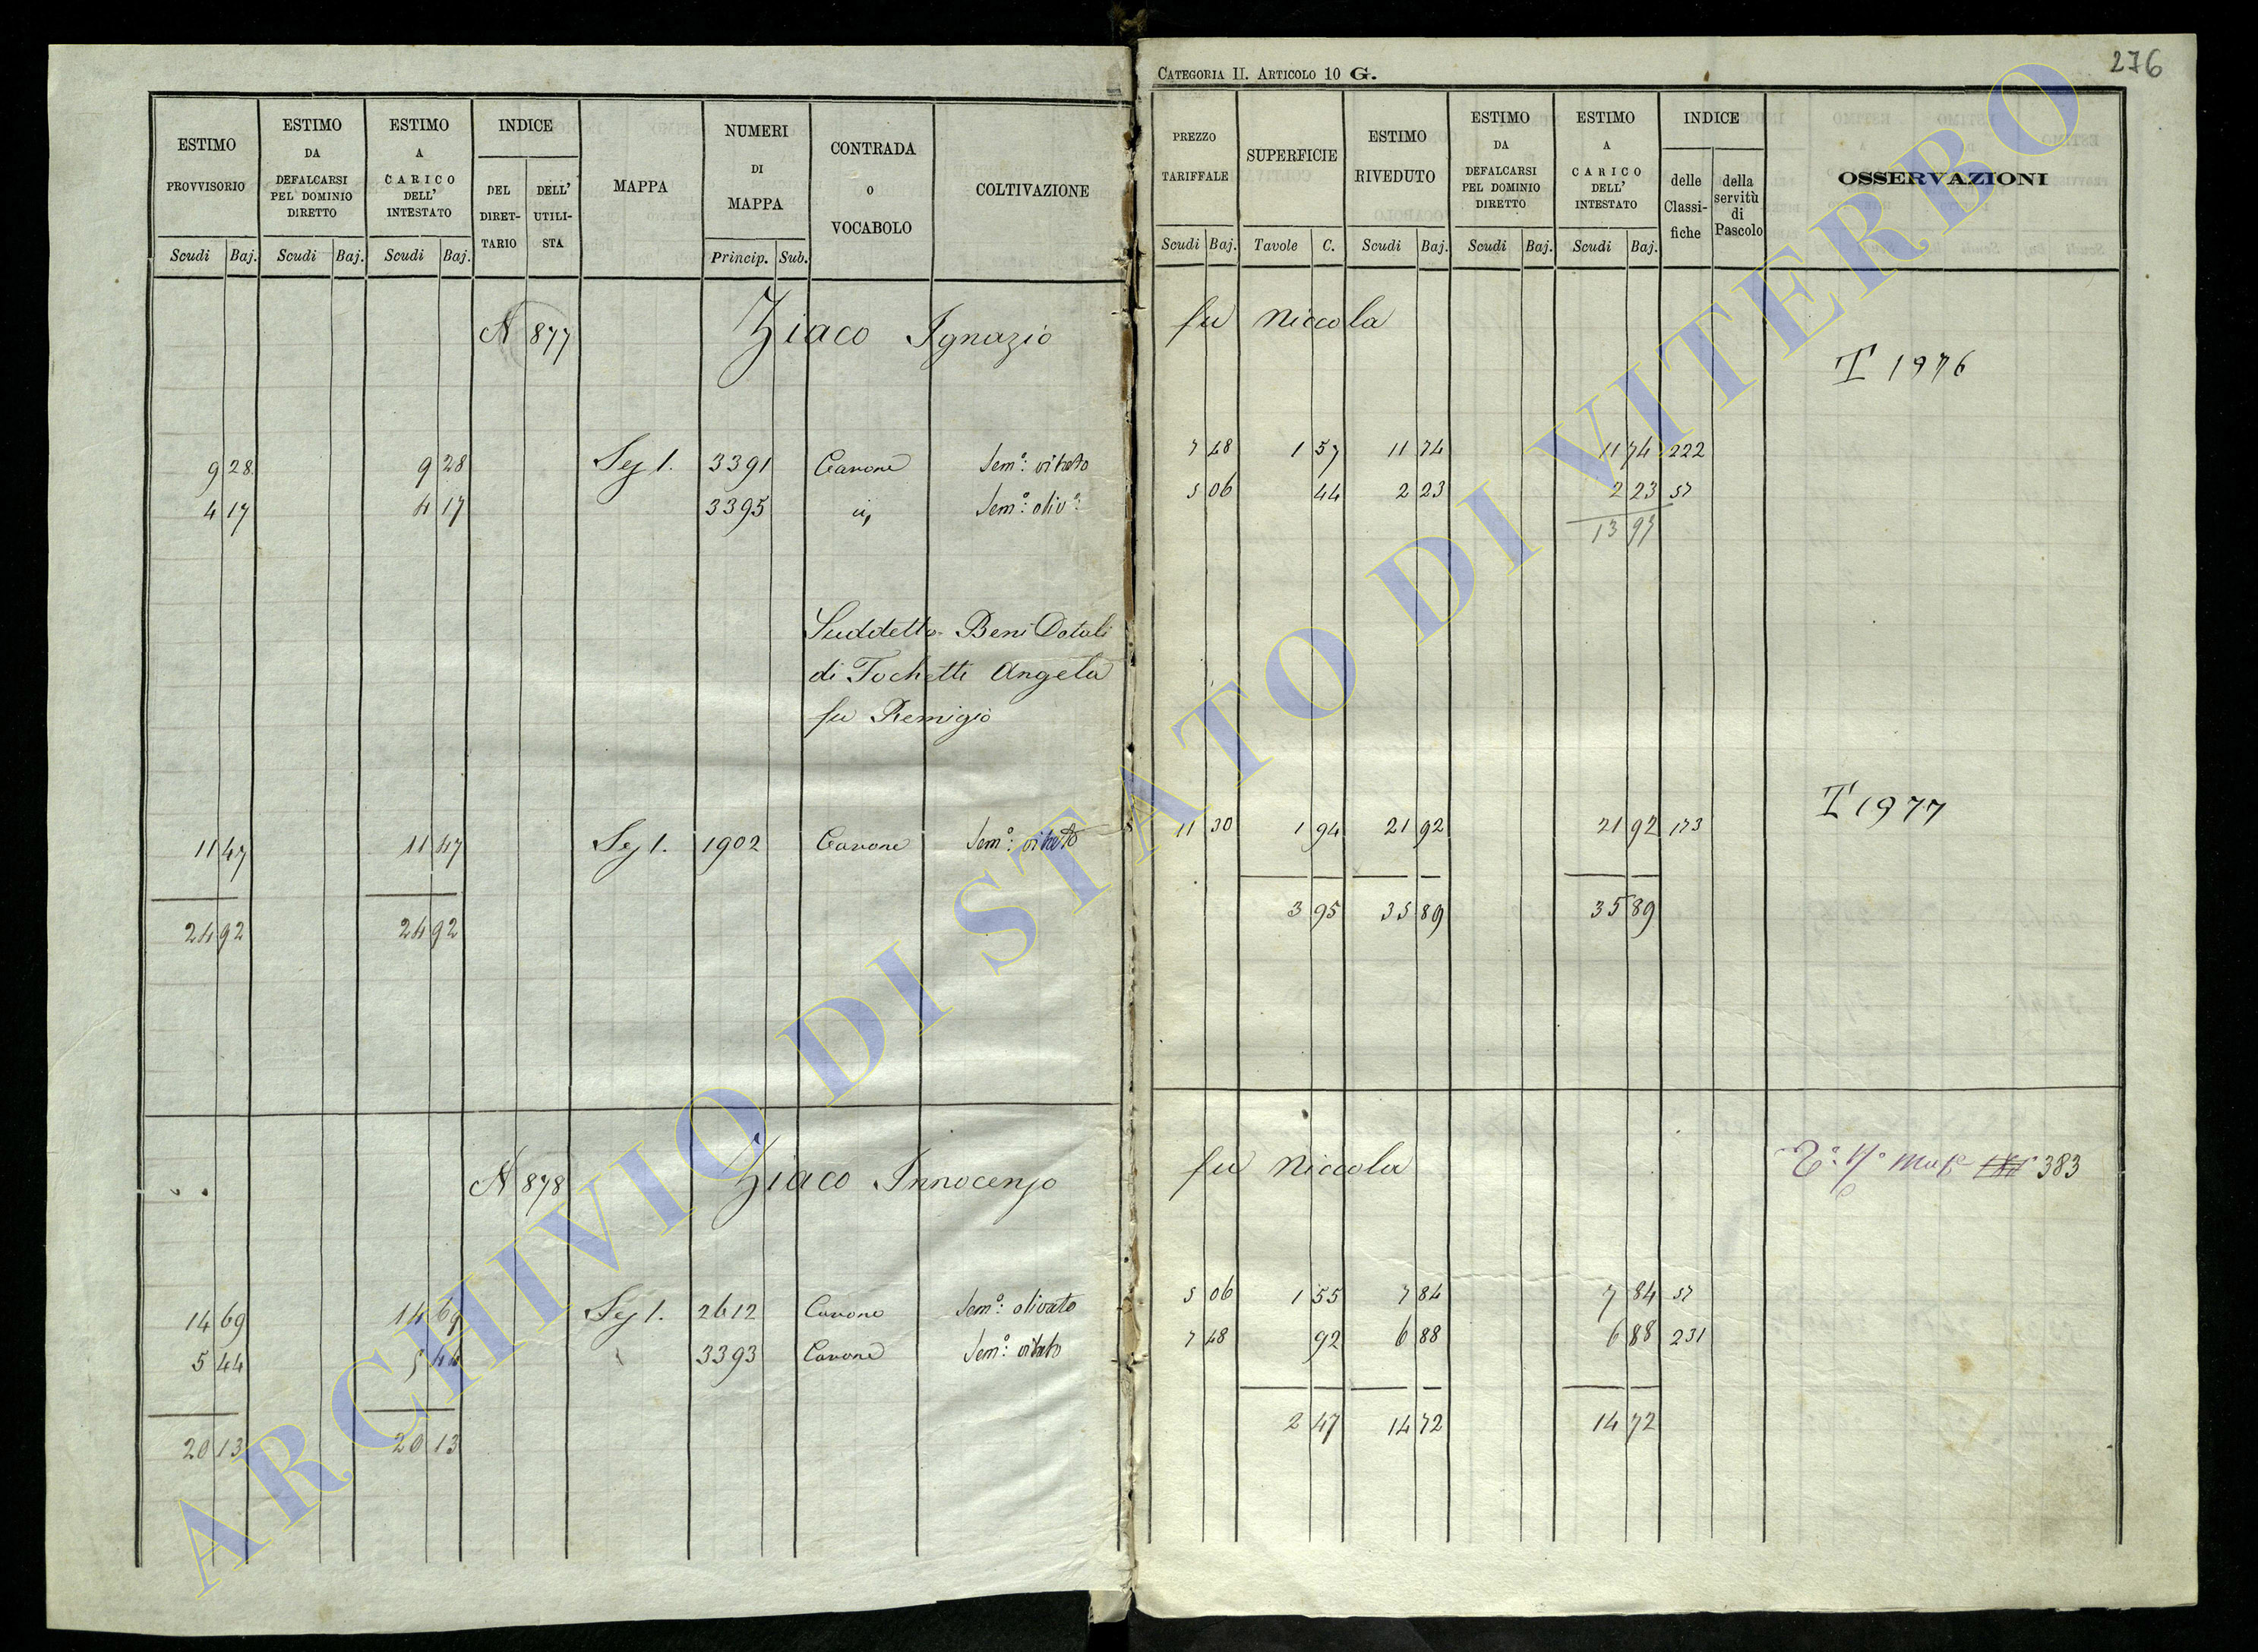 CATEGORIA II. ARTICOLO 10 G.
276
ESTIMO PROVVISORIO Scudi Baj.
ESTIMO DA DEFALCARSI PEL DOMINIO DIRETTO Scudi Baj.
ESTIMO A CARICO DELL' INTESTATO Scudi Baj.
INDICE DEL DIRET-TARIO DELL' UTILI-STA
MAPPA
NUMERI DI MAPPA Princip. Sub.
CONTRADA O VOCABOLO
COLTIVAZIONE
PREZZO TARIFFALE Scudi Baj.
SUPERFICIE Tavole C.
ESTIMO RIVEDUTO Scudi Baj.
ESTIMO DA DEFALCARSI PEL DOMINIO DIRETTO Scudi Baj.
ESTIMO A CARICO DELL' INTESTATO Scudi Baj.
INDICE delle Classi-fiche della servitù di Pascolo
OSSERVAZIONI
N 877 Ziaco Ignazio fu Niccola
T 1976
9 28 9 28 Sez 1. 3391 Cavone Sem.º vitato 7 48 1 57 11 74 11 74 222
4 17 4 17 3395 id, Sem.º oliv.º 5 06 44 2 23 2 23 57
13 97
Suddetto Beni Dotali
di Tochetti Angela
fu Remigio
T 1977
11 47 11 47 Sez 1. 1902 Cavone Sem.º vitato 11 30 1 94 21 92 21 92 173
24 92 24 92 3 95 35 89 35 89
N 878 Ziaco Innocenzo fu Niccola
383
14 69 14 69 Sez 1. 2612 Cavone Sem.º olivato 5 06 1 55 7 84 7 84 57
5 44 5 44 3393 Cavone Sem.º vitato 7 48 92 6 88 6 88 231
20 13 20 13 2 47 14 72 14 72
ARCHIVIO DI STATO DI VITERBO